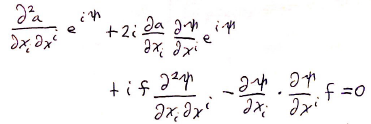 ∂²a/∂xᵢ∂xⁱ e^{iψ} + 2i ∂a/∂xᵢ ∂ψ/∂xⁱ e^{iψ}
+ i f ∂²ψ/∂xᵢ∂xⁱ − ∂ψ/∂xᵢ · ∂ψ/∂xⁱ f = 0